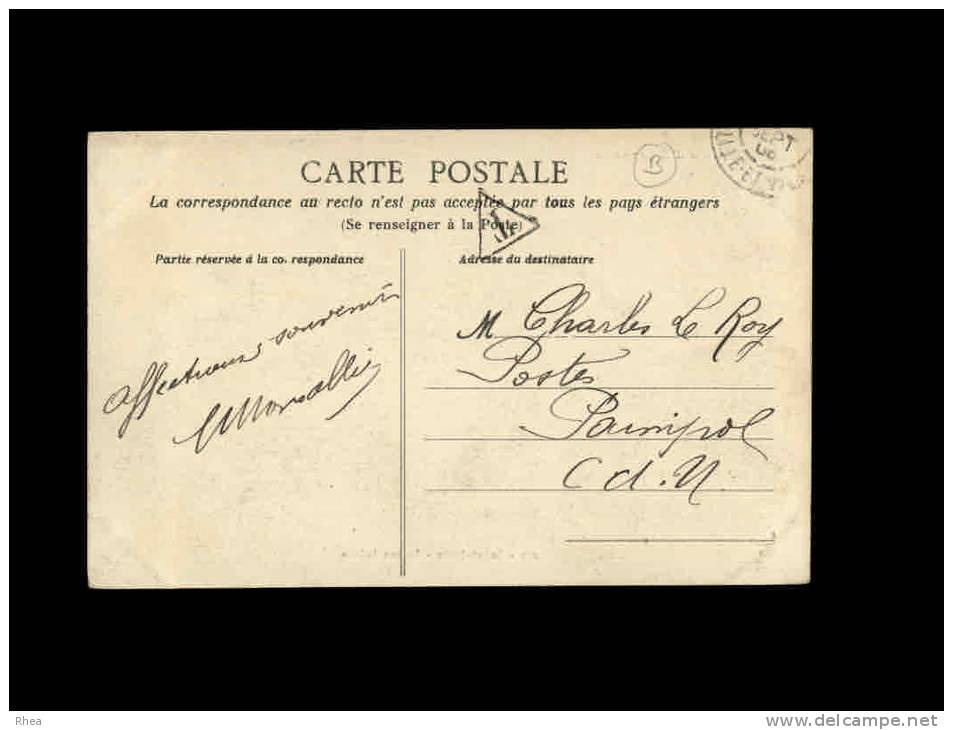 CARTE POSTALE
B
SEPT
La correspondance au recto n'est pas acceptée par tous les pays étrangers
(Se renseigner à la Poste)
T
Partie réservée à la co. respondance
Adresse du destinataire
Affectueux souvenir
M Charles Le Roy
Postes
Paimpol
C d. N.
Rhea
www.delcampe.net